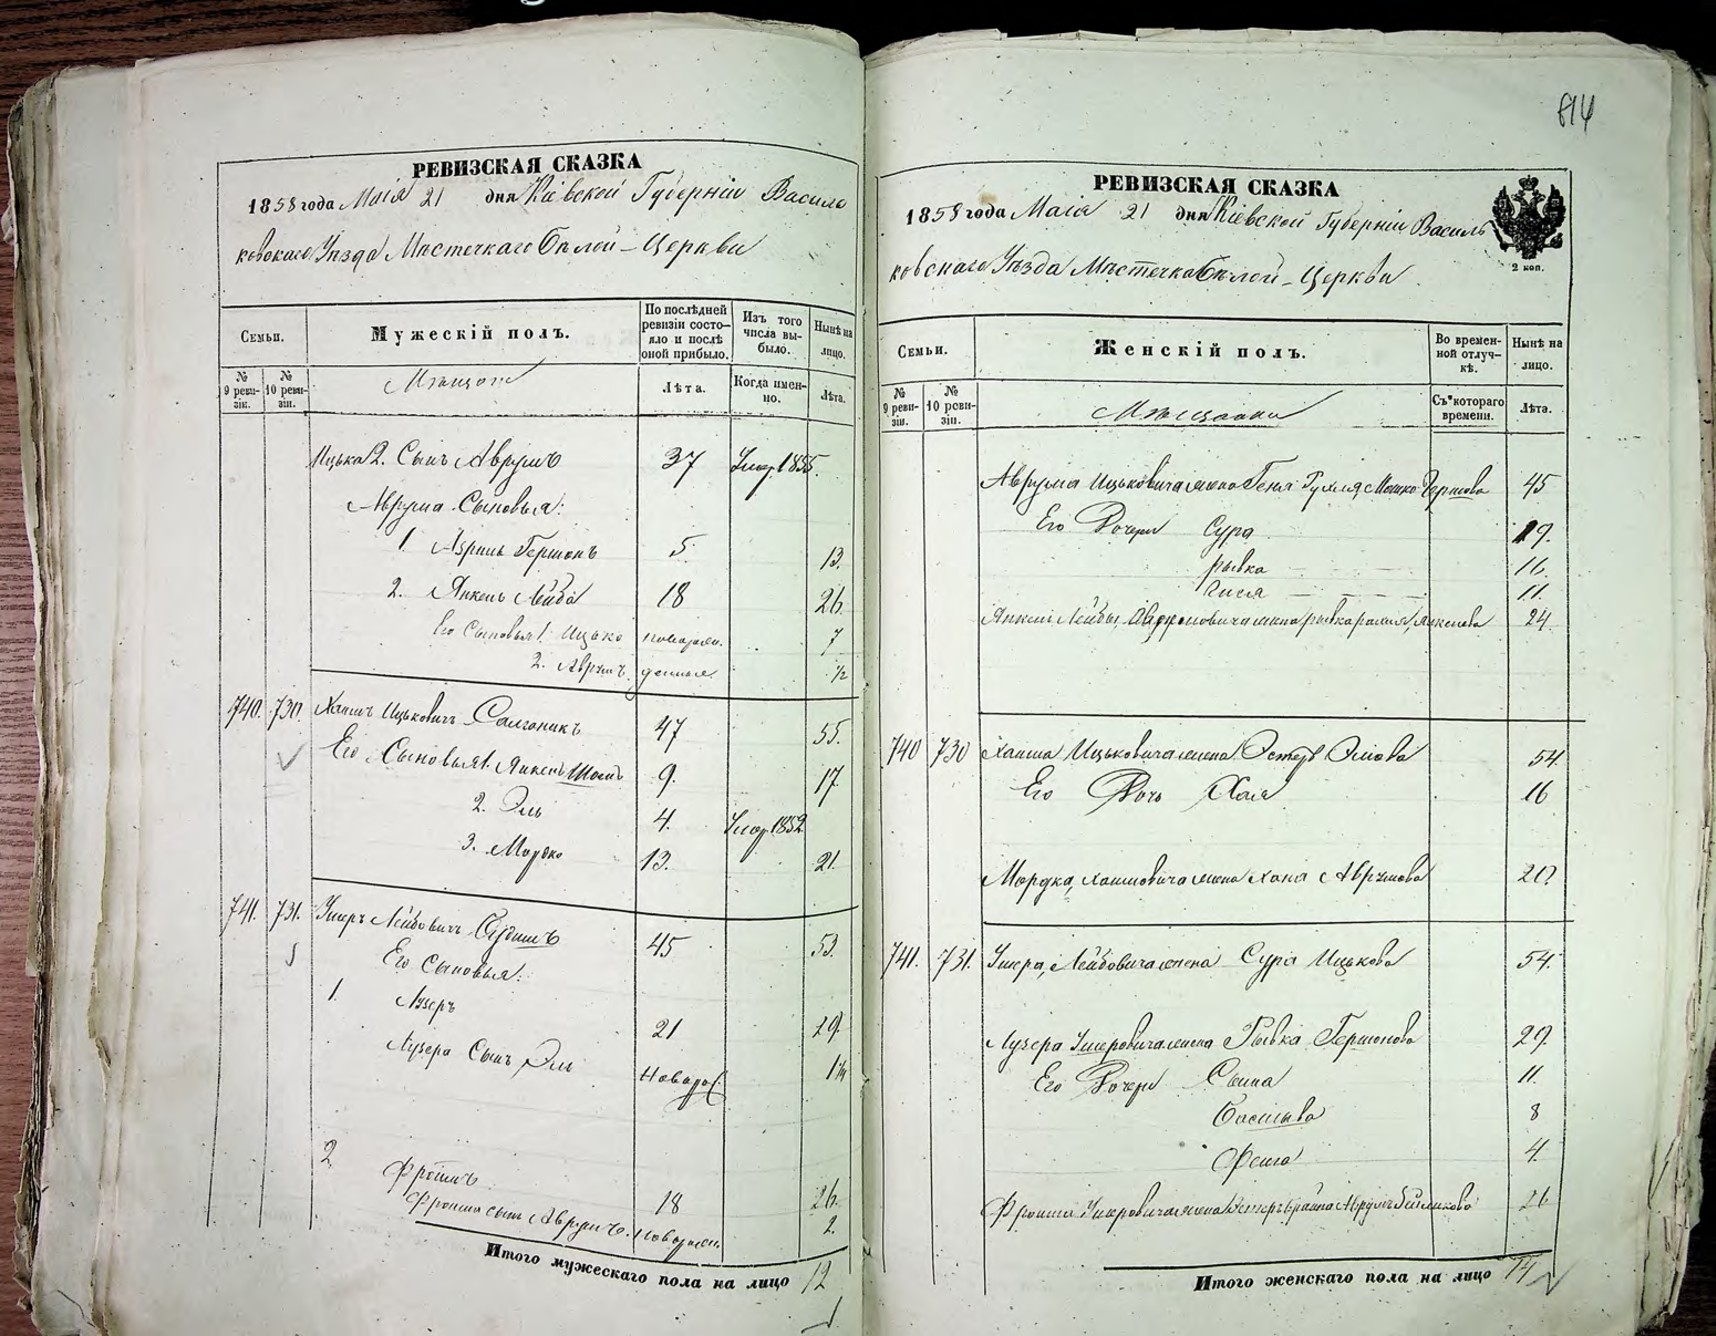 РЕВИЗСКАЯ СКАЗКА
1858 года Маія 21 дня Кіевской Губерніи Василь
ковскаго Уѣзда Мѣстечкаго Бѣлой-Церкви
Семьи.
Мужескій полъ.
По послѣдней ревизіи состо-яло и послѣ оной прибыло.
Изъ того числа вы-было.
Нынѣ на лицо.
№ 9 реви-зіи.
№ 10 реви-зіи.
Мѣщане
Лѣта.
Когда имен-но.
Лѣта.
Ицька 2. Сынъ Аврумъ 37 Умер. 1855.
Аврума Сыновья:
1 Азриль Гершонъ 5 13.
2. Янкель Лейба 18 26
Его Сыновья 1. Ицько новорож. 7
2. Аврумъ денные ½
740. 730. Хаимъ Ицьковичъ Салганикъ 47 55.
Его Сыновья 1. Янкель 9. 17.
2. Эль 4. Умер. 1852
3. Мордко 13. 21.
741. 731. Умеръ Лейбовичъ 45 53.
Его Сыновья:
1. Лузеръ 21 29
Лузера Сынъ Эль Новорож.
2. Фроимъ 18 26.
Фроима сынъ Аврумъ. Новорож. 2.
Итого мужескаго пола на лицо 12
614
РЕВИЗСКАЯ СКАЗКА
1858 года Маія 21 дня Кіевской Губерніи Василь
ковскаго Уѣзда Мѣстечка Бѣлой-Церкви
2 коп.
Семьи.
Женскій полъ.
Во времен-ной отлуч-кѣ.
Нынѣ на лицо.
№ 9 реви-зіи.
№ 10 реви-зіи.
Мѣщанки
Съ котораго времени.
Лѣта.
Аврума Ицьковича жена Геня Мошко Гершова 45
Его Дочери Сура 19.
рывка 16.
11.
Янкеля Лейбы Аврумовича жена 24
740 730 Хаима Ицьковича жена Эстеръ Элиова 54
Его Дочь Хая 16
Мордка, Хаимовича жена Хана Аврумова 20
741. 731. Лейбовича жена Сура Ицькова 54.
Лузера жена Рывка Гершонова 29.
Его Дочери 11.
8
Фейга 4.
Фроима жена 26
Итого женскаго пола на лицо 14